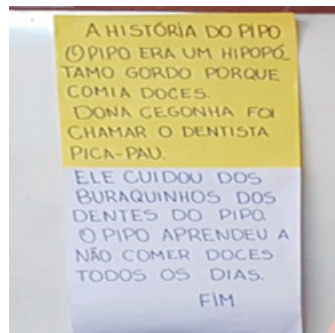 A HISTÓRIA DO PIPO
O PIPO ERA UM HIPOPÓ_
TAMO GORDO PORQUE
COMIA DOCES.
DONA CEGONHA FOI
CHAMAR O DENTISTA
PICA-PAU.
ELE CUIDOU DOS
BURAQUINHOS DOS
DENTES DO PIPO.
O PIPO APRENDEU A
NÃO COMER DOCES
TODOS OS DIAS.
FIM